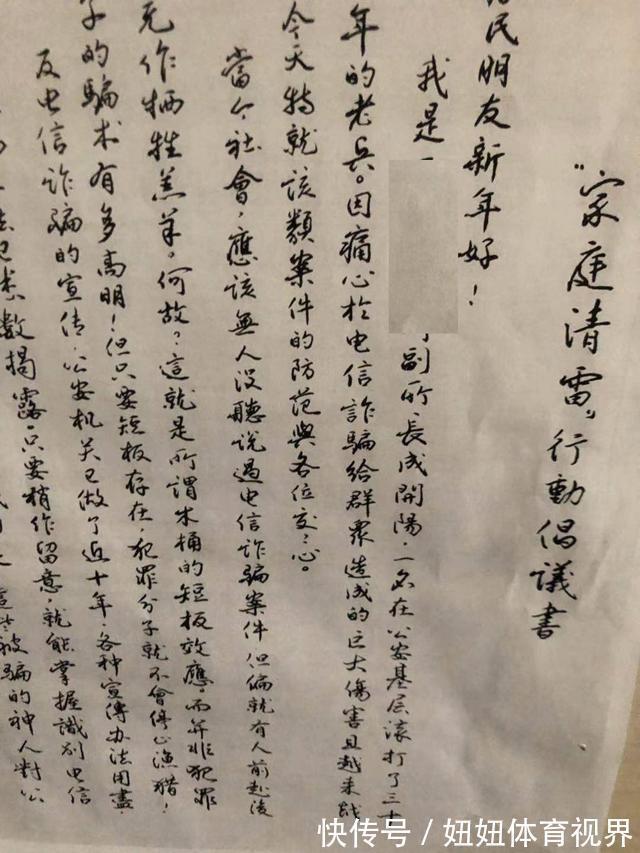 “家庭清雷”行動倡議書
民朋友新年好！
我是 副所長成開陽，一名在公安基层滚打了三十
年的老兵。因痛心於电信詐騙給群眾造成的巨大傷害且越来越
今天特就該類案件的防范與各位交〻心。
當今社會，應該無人没聽説過电信诈騙案件但偏就有人前赴後
充作牺牲羔羊。何故？這就是所謂木桶的短板效應。而并非犯罪
子的騙术有多高明！但只要短板存在，犯罪分子就不會停止漁猎！
反电信诈骗的宣传，公安机关已做了近十年，各种宣傳办法用盡，
已悉数揭露，只要稍作留意，就能掌握識别电信
這些被騙的神人對公
快传号／妞妞体育视界